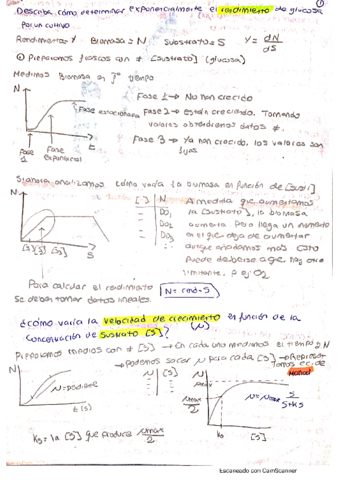 ①
Describe cómo determinar exponencialmente el rendimiento de glucosa
por un cultivo
Rendimiento Y Biomasa = N Sustrato = S Y = dN/dS
① Preparamos frascos con ≠ [sustrato] (glucosa)
Medimos Biomasa en Tº tiempo
N
Fase estacionaria
Fase 1
Fase exponencial
t
Fase 1 → No han crecido
Fase 2 → Están creciendo. Tomando
valores obtendremos datos ≠.
Fase 3 → Ya no han crecido, los valores son
fijos
cómo varía la biomasa en función de [sust]
N
S
[ ] N
DO1
DO2
DO3
A medida que aumentamos
la [sustrato], la biomasa
aumenta. Pero llega un momento
en el que deja de aumentar
aunque añadamos más. Esto
puede deberse a que hay otro
limitante, p ej O2
Para calcular el rendimiento
se deben tomar datos lineales.
N = cmd · S
¿cómo varía la velocidad de crecimiento en función de la
(μ)
concentración de sustrato [S]?
Preparamos medios con ≠ [S] → En cada uno medimos el tiempo y N
→ Podemos sacar μ para cada [S] →
Monod
N
μ = pendiente
t
μ [S]
μ
μmax
μmax/2
ks
[S]
μ = μmax S/S+ks
ks = la [S] que produce μmax/2
Escaneado con CamScanner